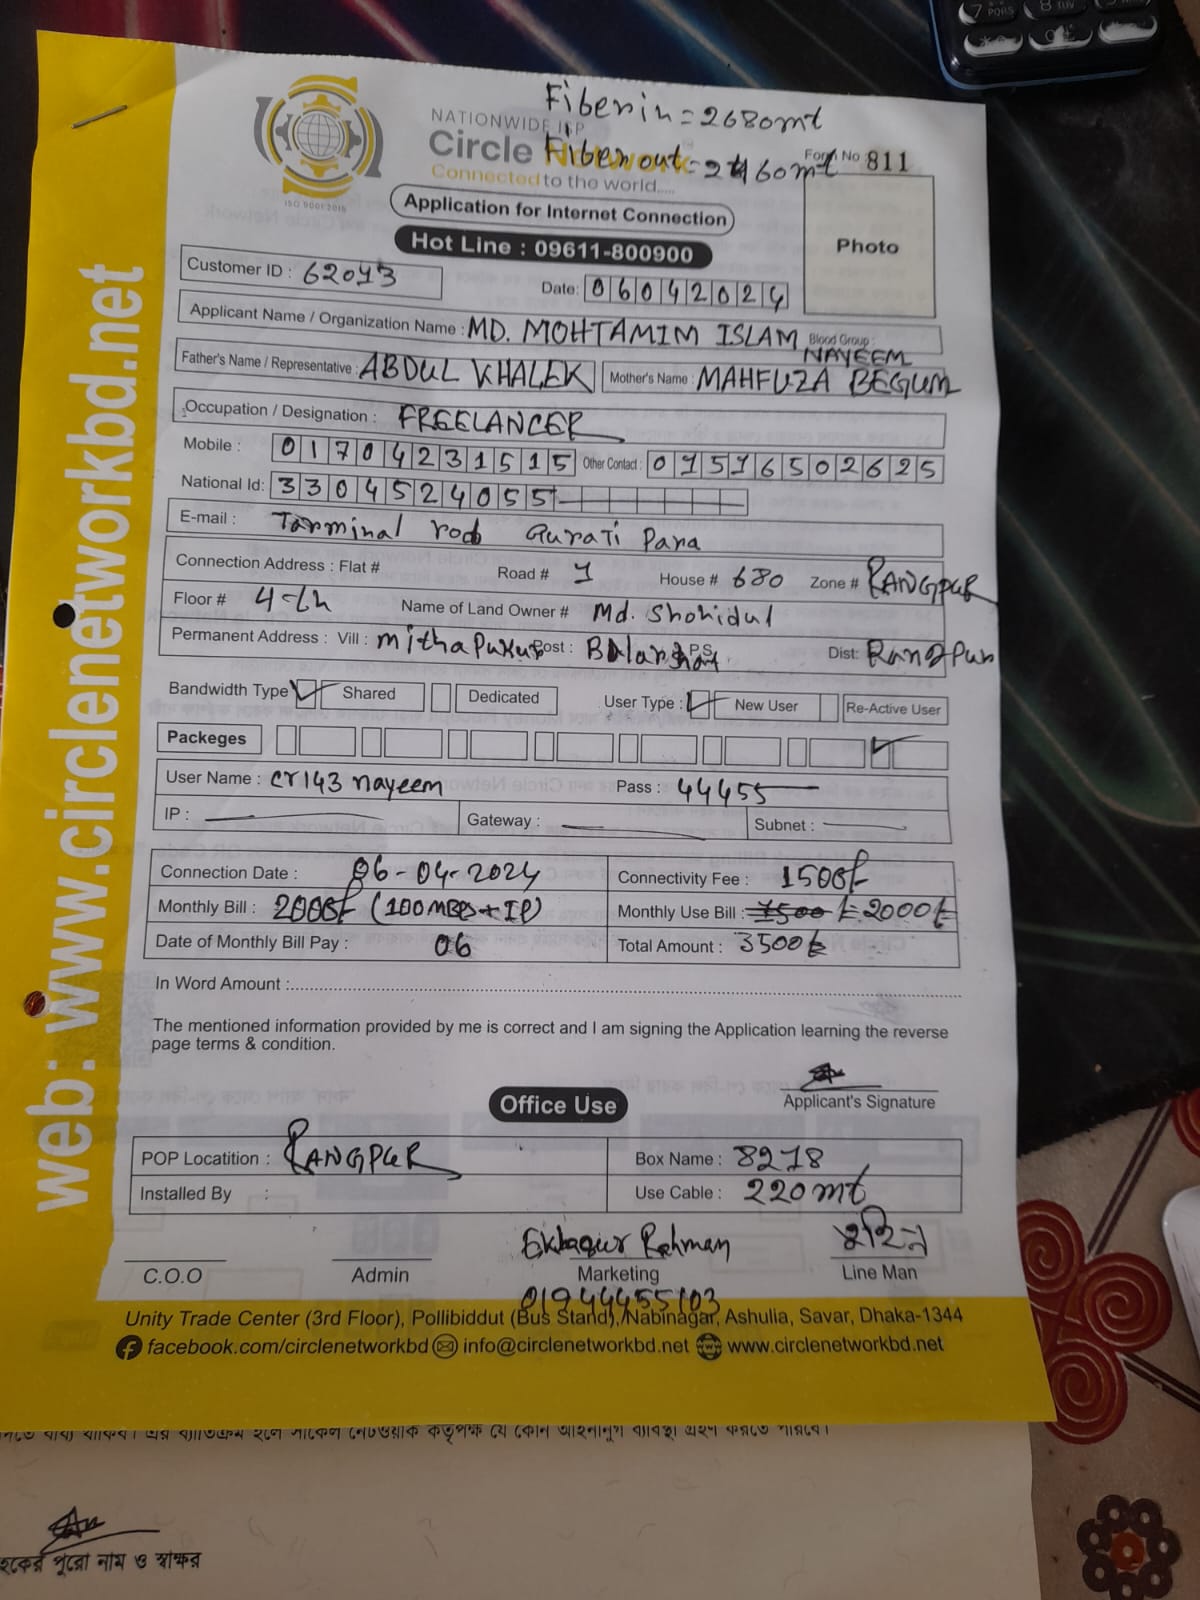 Fiber in = 2680mt
NATIONWIDE ISP
Circle Network
Fiber out = 2460mt
Form No 811
Connected to the world.....
ISO 9001:2015
Application for Internet Connection
Hot Line : 09611-800900
Photo
Customer ID : 62013
Date: 06042024
Applicant Name / Organization Name : MD. MOHTAMIM ISLAM Blood Group :
NAYEEM
Father's Name / Representative : ABDUL KHALEK Mother's Name : MAHFUZA BEGUM
Occupation / Designation : FREELANCER
Mobile : 01704231515 Other Contact : 01516502625
National Id: 3304524055
E-mail : Tarminal rod Gurati Para
Connection Address : Flat # Road # 1 House # 680 Zone # RANGPUR
Floor # 4-th Name of Land Owner # Md. Shohidul
Permanent Address : Vill : mithaPukur Post : P.S Dist: Rangpur
Bandwidth Type Shared Dedicated User Type : New User Re-Active User
Packeges
User Name : cr143 nayeem Pass : 44455
IP : Gateway : Subnet :
Connection Date : 06-04-2024 Connectivity Fee : 1500৳
Monthly Bill : 2000৳ (100MBPS + IP) Monthly Use Bill : 1500 ৳ 2000৳
Date of Monthly Bill Pay : 06 Total Amount : 3500৳
In Word Amount :
The mentioned information provided by me is correct and I am signing the Application learning the reverse
page terms & condition.
Applicant's Signature
Office Use
POP Locatition : RANGPUR Box Name : 8218
Installed By : Use Cable : 220mt
Ekbaqur Rahman
C.O.O Admin Marketing Line Man
01944455103
Unity Trade Center (3rd Floor), Pollibiddut (Bus Stand), Nabinagar, Ashulia, Savar, Dhaka-1344
facebook.com/circlenetworkbd info@circlenetworkbd.net www.circlenetworkbd.net
web: www.circlenetworkbd.net
বাধ্য থাকিব। এর ব্যতিক্রম হলে সার্কেল নেটওয়ার্ক কর্তৃপক্ষ যে কোন আইনানুগ ব্যবস্থা গ্রহণ করতে পারবে।
হকের পুরো নাম ও স্বাক্ষর